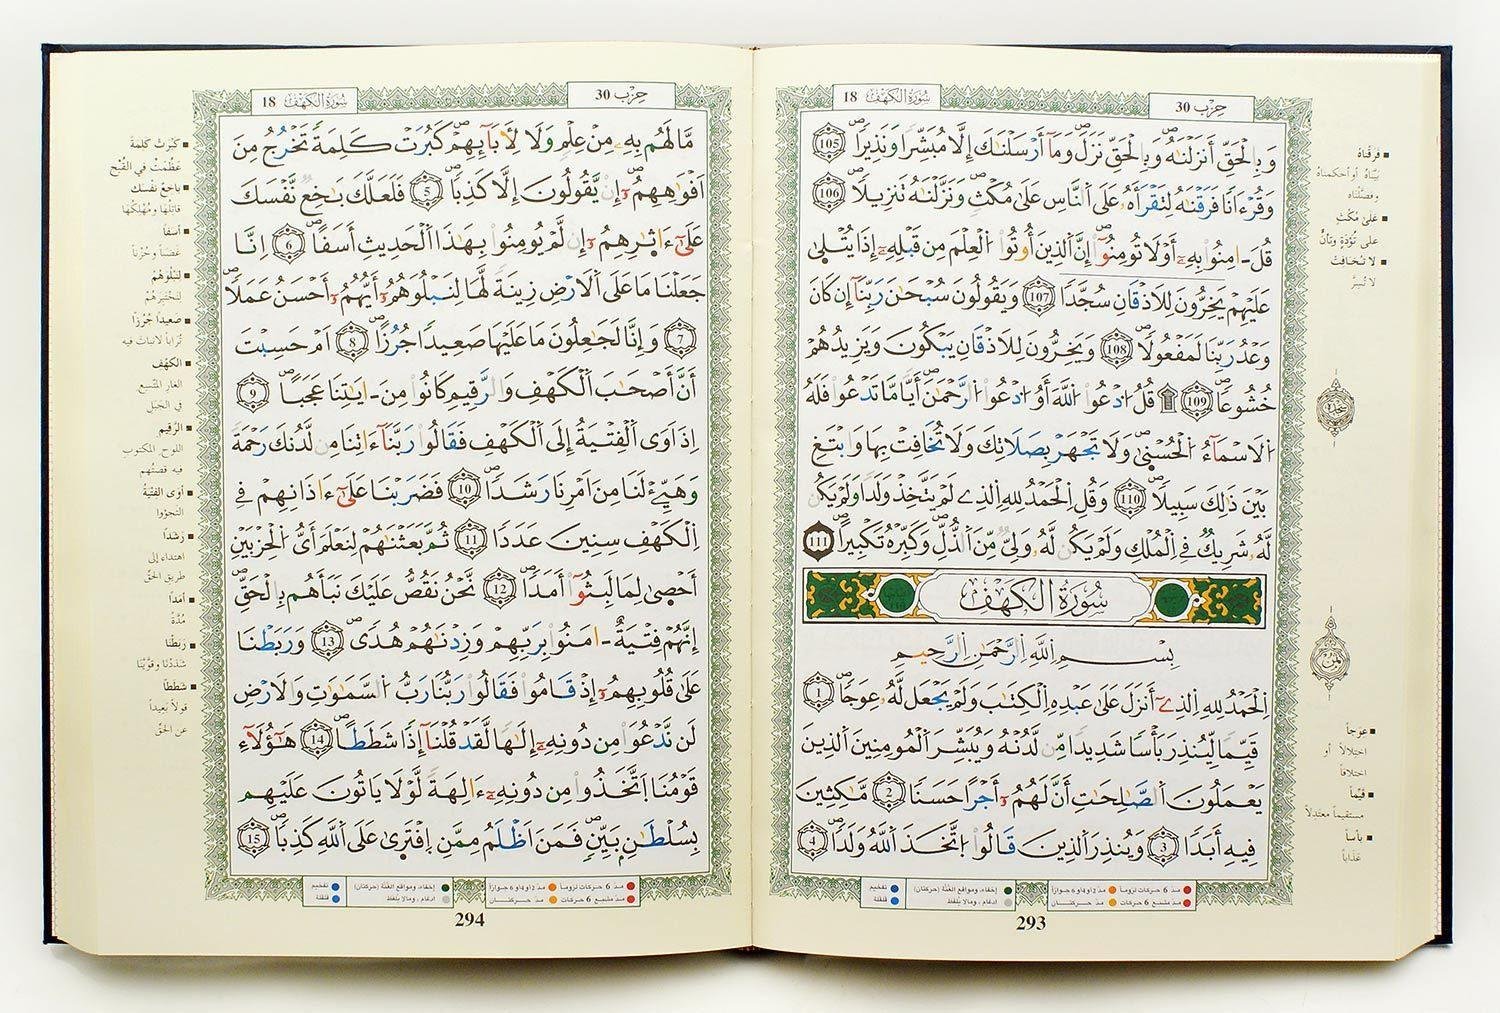 حِزْب 30
سُورَةُ الكَهْفِ 18
وَبِالْحَقِّ أَنزَلْنَٰهُ وَبِالْحَقِّ نَزَلَۖ وَمَآ أَرْسَلْنَٰكَ إِلَّا مُبَشِّرًا وَنَذِيرًاۖ 105
وَقُرْءَانًا فَرَقْنَٰهُ لِتَقْرَأَهُۥ عَلَى النَّاسِ عَلَىٰ مُكْثٍۖ وَنَزَّلْنَٰهُ تَنزِيلًاۖ 106
قُلَ اٰمِنُوا بِهِۦٓ أَوْ لَا تُومِنُوٓاۖ إِنَّ الذِينَ أُوتُوا الْعِلْمَ مِن قَبْلِهِۦٓ إِذَا يُتْلَىٰ
عَلَيْهِمْ يَخِرُّونَ لِلَاذْقَانِ سُجَّدًاۖ 107 وَيَقُولُونَ سُبْحَٰنَ رَبِّنَآ إِن كَانَ
وَعْدُ رَبِّنَا لَمَفْعُولًاۖ 108 وَيَخِرُّونَ لِلَاذْقَانِ يَبْكُونَ وَيَزِيدُهُمْ
خُشُوعًاۖ 109 ۩ قُلُ ادْعُوا اللَّهَ أَوُ ادْعُوا الرَّحْمَٰنَۖ أَيًّا مَّا تَدْعُوا فَلَهُ
الَاسْمَآءُ الْحُسْنَىٰۖ وَلَا تَجْهَرْ بِصَلَاتِكَ وَلَا تُخَافِتْ بِهَا وَابْتَغِ
بَيْنَ ذَٰلِكَ سَبِيلًاۖ 110 وَقُلِ الْحَمْدُ لِلهِ الذِے لَمْ يَتَّخِذْ وَلَدًا وَلَمْ يَكُن
لَّهُۥ شَرِيكٌ فِے الْمُلْكِ وَلَمْ يَكُن لَّهُۥ وَلِيٌّ مِّنَ الذُّلِّۖ وَكَبِّرْهُ تَكْبِيرًاۖ 111
سُورَةُ الكَهْفِ
بِسْمِ اللَّهِ الرَّحْمَٰنِ الرَّحِيمِ
الْحَمْدُ لِلهِ الذِےٓ أَنزَلَ عَلَىٰ عَبْدِهِ الْكِتَٰبَ وَلَمْ يَجْعَل لَّهُۥ عِوَجًاۖ 1
قَيِّمًا لِّيُنذِرَ بَأْسًا شَدِيدًا مِّن لَّدُنْهُ وَيُبَشِّرَ الْمُومِنِينَ الذِينَ
يَعْمَلُونَ الصَّٰلِحَٰتِ أَنَّ لَهُمُۥٓ أَجْرًا حَسَنًا 2 مَّٰكِثِينَ
فِيهِ أَبَدًا 3 وَيُنذِرَ الذِينَ قَالُوا اتَّخَذَ اللَّهُ وَلَدًاۖ 4
■ فَرَقْنَاهُ
بَيَّنَّاهُ أو أحكمناهُ
وفصَّلْناه
■ عَلَىٰ مُكْثٍ
على تُؤَدَةٍ وتأنٍّ
■ لا تُخافِتْ
لا تُسِرَّ
سجدة
ثمن
■ عِوَجاً
اختلالاً أو
اختلافاً
■ قَيِّماً
مستقيماً معتدلاً
■ بأساً
عَذَاباً
مدّ 6 حركات لزوماً مدّ 2 أو 4 أو 6 جوازاً
مدّ مشبع 6 حركات مدّ حركتان
إخفاء، ومواقع الغُنَّة (حركتان)
إدغام، وما لا يُلفَظ
تفخيم
قلقلة
293
حِزْب 30
سُورَةُ الكَهْفِ 18
مَّا لَهُم بِهِۦ مِنْ عِلْمٍ وَلَا لِأَبَآئِهِمْۖ كَبُرَتْ كَلِمَةً تَخْرُجُ مِنَ
اَفْوَٰهِهِمُۥٓۖ إِنْ يَّقُولُونَ إِلَّا كَذِبًاۖ 5 فَلَعَلَّكَ بَٰخِعٌ نَّفْسَكَ
عَلَىٰٓ ءَاثٰ۪رِهِمُۥٓ إِن لَّمْ يُومِنُوا بِهَٰذَا الْحَدِيثِ أَسَفًاۖ 6 اِنَّا
جَعَلْنَا مَا عَلَى الَارْضِ زِينَةً لَّهَا لِنَبْلُوَهُمُۥٓ أَيُّهُمُۥٓ أَحْسَنُ عَمَلًاۖ
7 وَإِنَّا لَجَٰعِلُونَ مَا عَلَيْهَا صَعِيدًا جُرُزًاۖ 8 اَمْ حَسِبْتَ
أَنَّ أَصْحَٰبَ الْكَهْفِ وَالرَّقِيمِ كَانُوا مِنَ اٰيَٰتِنَا عَجَبًاۖ 9
اِذَ اَوَى الْفِتْيَةُ إِلَى الْكَهْفِ فَقَالُوا رَبَّنَآ ءَاتِنَا مِن لَّدُنكَ رَحْمَةً
وَهَيِّئْ لَنَا مِنَ اَمْرِنَا رَشَدًاۖ 10 فَضَرَبْنَا عَلَىٰٓ ءَاذَانِهِمْ فِے
الْكَهْفِ سِنِينَ عَدَدًا 11 ثُمَّ بَعَثْنَٰهُمْ لِنَعْلَمَ أَيُّ الْحِزْبَيْنِ
أَحْصَىٰ لِمَا لَبِثُوٓا أَمَدًاۖ 12 نَّحْنُ نَقُصُّ عَلَيْكَ نَبَأَهُم بِالْحَقِّۖ
إِنَّهُمْ فِتْيَةٌ اٰمَنُوا بِرَبِّهِمْ وَزِدْنَٰهُمْ هُدًىۖ 13 وَرَبَطْنَا
عَلَىٰ قُلُوبِهِمُۥٓ إِذْ قَامُوا فَقَالُوا رَبُّنَا رَبُّ السَّمَٰوَٰتِ وَالَارْضِ
لَن نَّدْعُوَا مِن دُونِهِۦٓ إِلَٰهًا لَّقَدْ قُلْنَآ إِذًا شَطَطًاۖ 14 هَٰٓؤُلَآءِ
قَوْمُنَا اَتَّخَذُوا مِن دُونِهِۦٓ ءَالِهَةً لَّوْلَا يَاتُونَ عَلَيْهِم
بِسُلْطَٰنٍ بَيِّنٍۖ فَمَنَ اَظْلَمُ مِمَّنِ اِفْتَرَىٰ عَلَى اللَّهِ كَذِبًاۖ 15
■ كَبُرَتْ كلِمَةً
عَظُمَتْ في القُبْح
■ باخعٌ نَفْسَك
قاتلُها ومُهْلِكُها
■ أسفاً
غضَباً وحُزْناً
■ لِنَبْلُوَهُمْ
لنَختبرَهُمْ
■ صَعيداً جُرُزاً
تُرَاباً لا نباتَ فيه
■ الكَهْفِ
الغار المتّسِع
في الجَبَل
■ الرَّقيم
اللَّوح المكتوب
فيه قصتُهم
■ أوَى الفِتْيَةُ
التجؤوا
■ رَشَداً
اهتداءً إلى
طريق الحَقِّ
■ أمَداً
مُدَّةً
■ رَبَطْنا
شدَدْنا وقوَّيْنا
■ شَطَطاً
قولاً بَعِيداً
عن الحَقِّ
مدّ 6 حركات لزوماً مدّ 2 أو 4 أو 6 جوازاً
مدّ مشبع 6 حركات مدّ حركتان
إخفاء، ومواقع الغُنَّة (حركتان)
إدغام، وما لا يُلفَظ
تفخيم
قلقلة
294